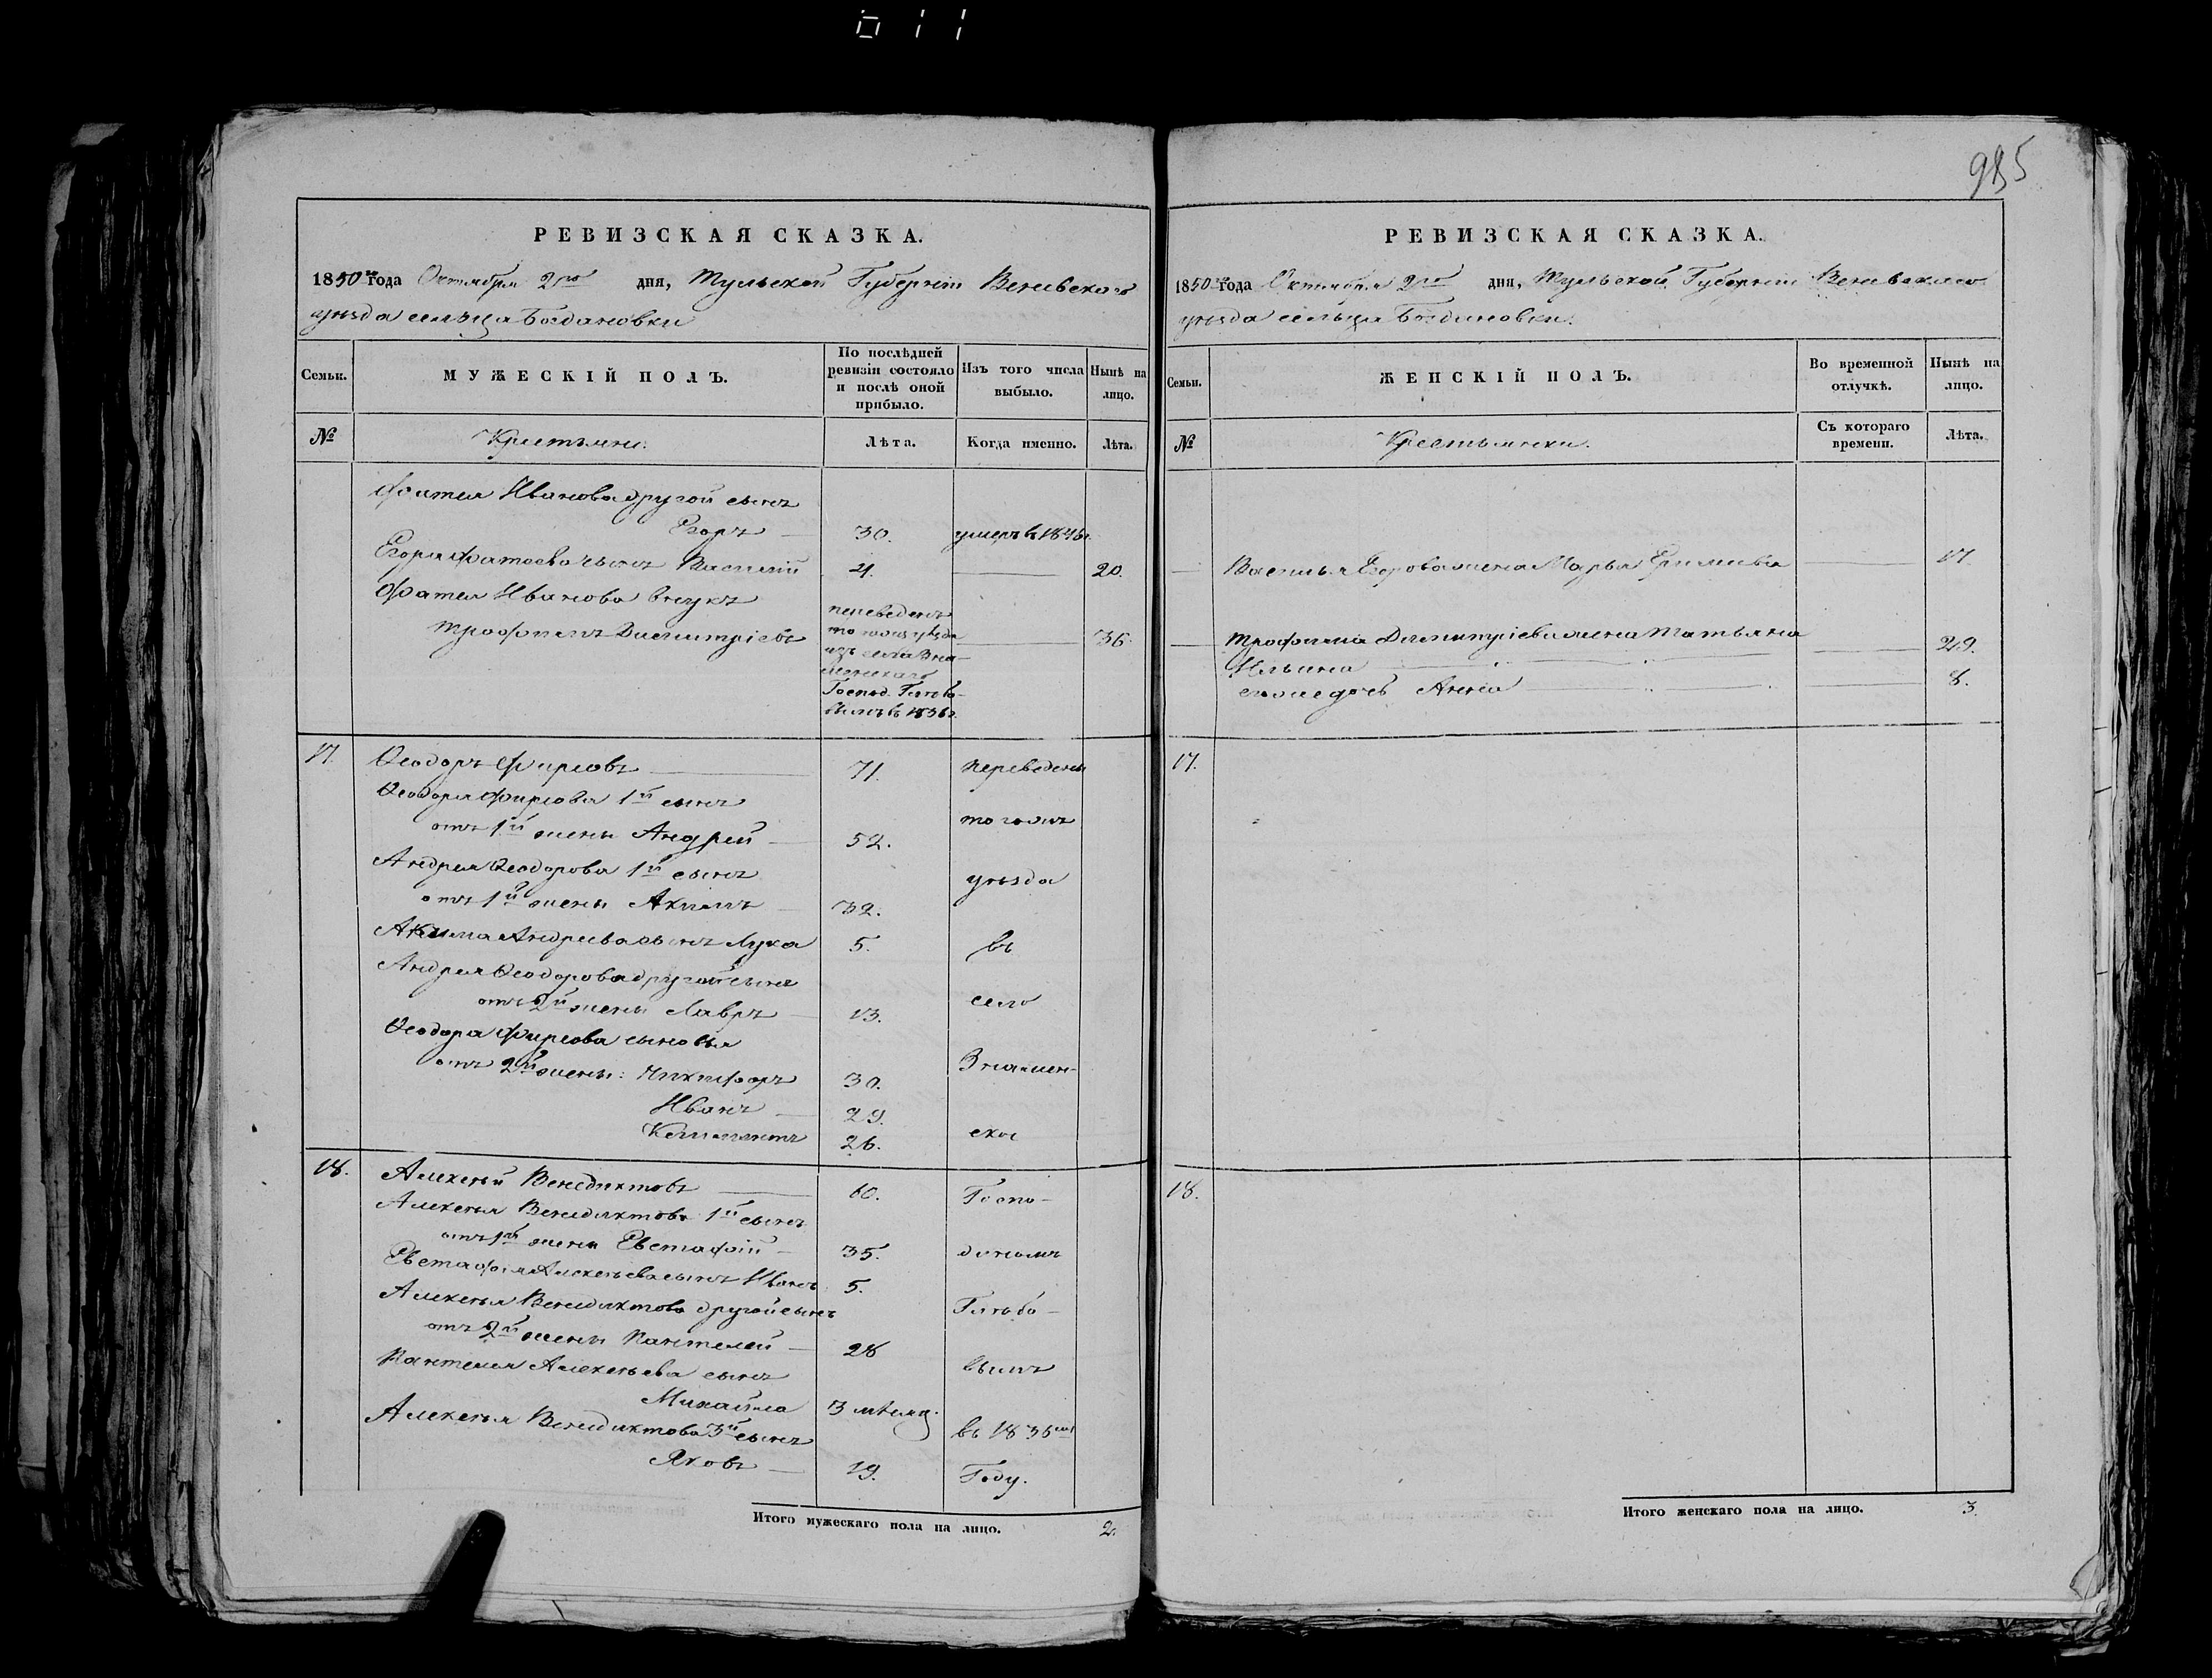 011
985
РЕВИЗСКАЯ СКАЗКА.
1850го года Октября 2го дня, Тульской Губернiи Веневскаго
уѣзда сельца Богдановки
Семьи.
МУЖЕСКІЙ ПОЛЪ.
По послѣдней ревизіи состояло и послѣ оной прибыло.
Изъ того числа выбыло.
Нынѣ на лицо.
№
Крестьяне.
Лѣта.
Когда именно.
Лѣта.
Фатея Иванова другой сынъ
Егоръ — 30. умеръ в 1846г.
Егора Фатеева сынъ Василiй 4. — 20.
Фатея Иванова внукъ
Трофимъ Дмитрiевъ
переведенъ
того уѣзда
изъ села Зна-
менскаго
Господ.
въ 1836г.
— 36.
17. Ѳеодоръ Фирсовъ — 71. переведены
Ѳеодора Фирсова 1й сынъ
отъ 1й жены Андрей — 52. тогожъ
Андрея Ѳеодорова 1й сынъ уѣзда
отъ 1й жены Акимъ — 32.
Акима Андреева сынъ Лука 5. въ
Андрея Ѳеодорова другой сынъ
отъ 2й жены Лавръ — 13. село
Ѳеодора Фирсова сыновья
отъ 2й жены: Никифоръ 30. Знамен-
Иванъ — 29.
26. ское
18. Алексѣй Венедиктовъ — 60. Госпо-
Алексѣя Венедиктова 1й сынъ
отъ 1й жены Евстафiй — 35. диномъ
Евстафiя Алексѣева сынъ Иванъ 5.
Алексѣя Венедиктова другой сынъ Глѣбо-
отъ 2й жены Пантелей — 28
Пантелея Алексѣева сынъ вымъ
Михайла 3 мѣсяц.
Алексѣя Венедиктова 3й сынъ въ 1836мъ
Яковъ — 19. Году.
Итого мужескаго пола на лицо. 2.
РЕВИЗСКАЯ СКАЗКА.
1850го года Октября 2го дня, Тульской Губернiи Веневскаго
уѣзда сельца Богдановки.
Семьи.
ЖЕНСКІЙ ПОЛЪ.
Во временной отлучкѣ.
Нынѣ на лицо.
№
Крестьянки.
Съ котораго времени.
Лѣта.
— Василья Егорова жена Марья — 17.
— Трофима Дмитрiева жена Татьяна
Ильина — 29.
ихъ дочь Анна — 8.
17.
18.
Итого женскаго пола на лицо. 3.